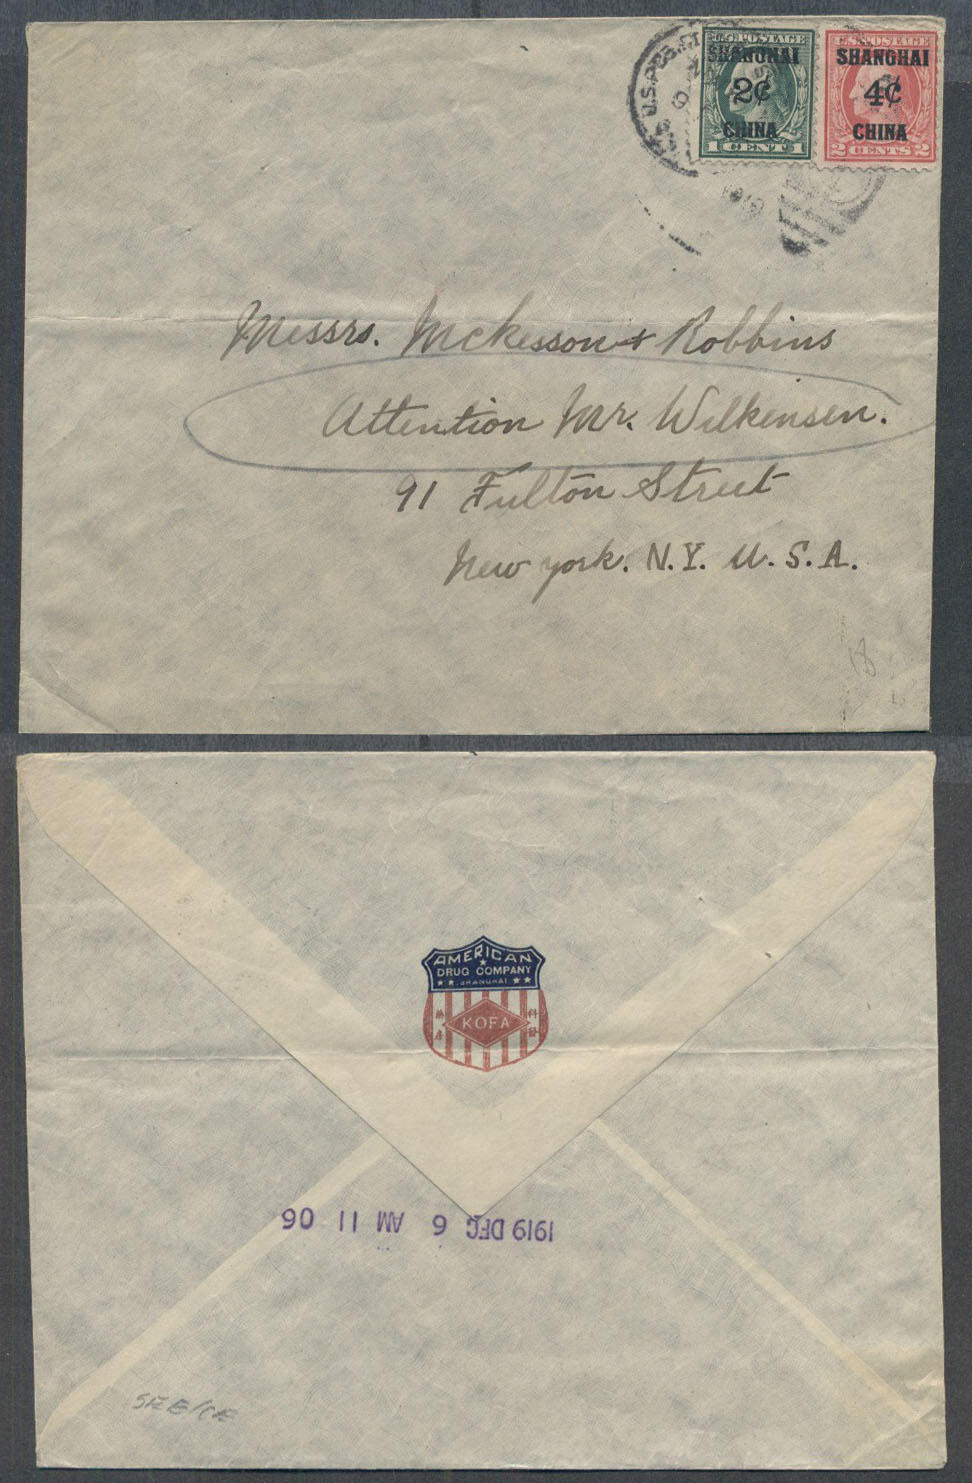 U.S. POSTAGE
SHANGHAI
2¢
CHINA
1 CENT 1
U.S. POSTAGE
SHANGHAI
4¢
CHINA
2 CENTS 2
U.S.
1919
Messrs. McKesson & Robbins
Attention Mr. Wilkensen.
91 Fulton Street
New York. N.Y. U.S.A.
18
AMERICAN
DRUG COMPANY
SHANGHAI
KOFA
科發
藥房
1919 DEC 6 AM 11 06